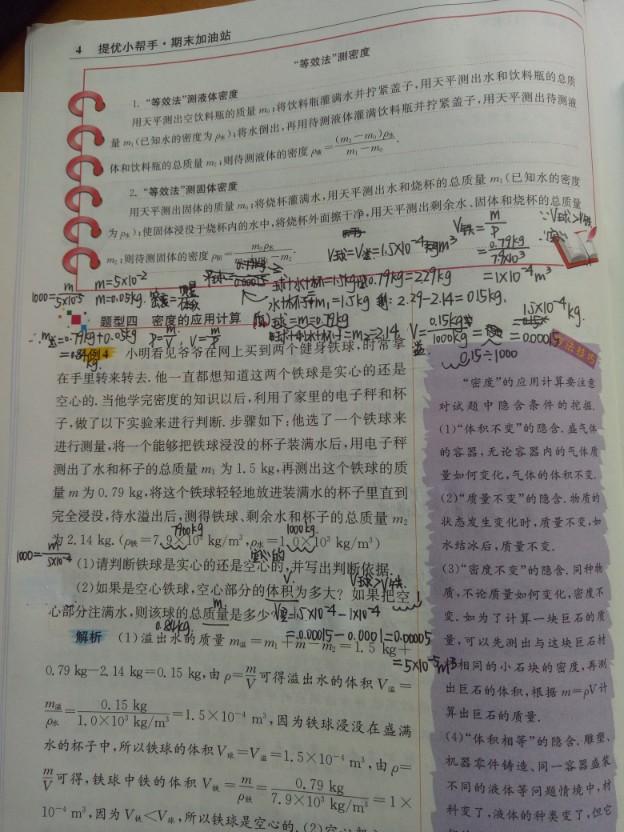 4 提优小帮手·期末加油站
“等效法”测密度
1. “等效法”测液体密度
用天平测出空饮料瓶的质量 m₀;将饮料瓶灌满水并拧紧盖子,用天平测出水和饮料瓶的总质
量 m₁(已知水的密度为 ρ水);将水倒出,再用待测液体灌满饮料瓶并拧紧盖子,用天平测出待测液
体和饮料瓶的总质量 m₂;则待测液体的密度 ρ液=(m₂−m₀)ρ水/(m₁−m₀).
2. “等效法”测固体密度
用天平测出固体的质量 m₀;将烧杯灌满水,用天平测出水和烧杯的总质量 m₁(已知水的密度
为 ρ水);使固体浸没于烧杯内的水中,将烧杯外面擦干净,用天平测出剩余水、固体和烧杯的总质量
m₂;则待测固体的密度 ρ固=
V球=V溢=1.5×10⁻⁴ m³
V铁=m/ρ
=0.79kg/7.9×10³
=1×10⁻⁴ m³
∵V球>V铁
m=5×10⁻²
m=0.05kg.
球+水+杯=1.5kg+0.79kg=2.29kg
水+杯=m₁=1.5kg 2.29-2.14=0.15kg.
球=m=0.79kg
=m₂=2.14
V=0.15kg/1000kg
=0.00015
0.15÷1000
1000=m/5×10⁻⁵
∴m总=0.79kg+0.05kg
=0.84kg.
题型四 密度的应用计算
例4 小明看见爷爷在网上买到两个健身铁球,时常拿
在手里转来转去. 他一直都想知道这两个铁球是实心的还是
空心的. 当他学完密度的知识以后,利用了家里的电子秤和杯
子,做了以下实验来进行判断. 步骤如下:他选了一个铁球来
进行测量,将一个能够把铁球浸没的杯子装满水后,用电子秤
测出了水和杯子的总质量 m₁ 为 1.5 kg,再测出这个铁球的质
量 m 为 0.79 kg,将这个铁球轻轻地放进装满水的杯子里直到
完全浸没,待水溢出后,测得铁球、剩余水和杯子的总质量 m₂
7900kg 1000kg
为 2.14 kg. (ρ铁=7.9×10³ kg/m³,ρ水=1.0×10³ kg/m³)
(1)请判断铁球是实心的还是空心的,并写出判断依据.
空心的
V球>V铁
(2)如果是空心铁球,空心部分的体积为多大?如果把空
心部分注满水,则该球的总质量是多少?
V空=1.5×10⁻⁴−1×10⁻⁴
0.84kg
=0.00015−0.0001=0.00005
=5×10⁻⁵m³
解析 (1)溢出水的质量 m溢=m₁+m−m₂=1.5 kg+
0.79 kg−2.14 kg=0.15 kg,由 ρ=m/V 可得溢出水的体积 V溢=
m溢/ρ水=0.15 kg/1.0×10³ kg/m³=1.5×10⁻⁴ m³,因为铁球浸没在盛满
水的杯子中,所以铁球的体积 V球=V溢=1.5×10⁻⁴ m³,由 ρ=
m/V 可得,铁球中铁的体积 V铁=m/ρ铁=0.79 kg/7.9×10³ kg/m³=1×
10⁻⁴ m³,因为 V铁<V球,所以铁球是空心的. (2)
方法技巧
“密度”的应用计算要注意
对试题中隐含条件的挖掘.
(1)“体积不变”的隐含. 盛气体
的容器,无论容器内的气体质
量如何变化,气体的体积不变.
(2)“质量不变”的隐含. 物质的
状态发生变化时,质量不变,如
水结冰后,质量不变.
(3)“密度不变”的隐含. 同种物
质,不论质量如何变化,密度不
变. 如为了计算一块巨石的质
量,可以先测出与这块巨石材
相同的小石块的密度,再测
出巨石的体积,根据 m=ρV 计
算出巨石的质量.
(4)“体积相等”的隐含. 雕塑、
机器零件铸造、同一容器盛装
不同的液体等问题情境中,材
料变了,液体的种类变了,但它